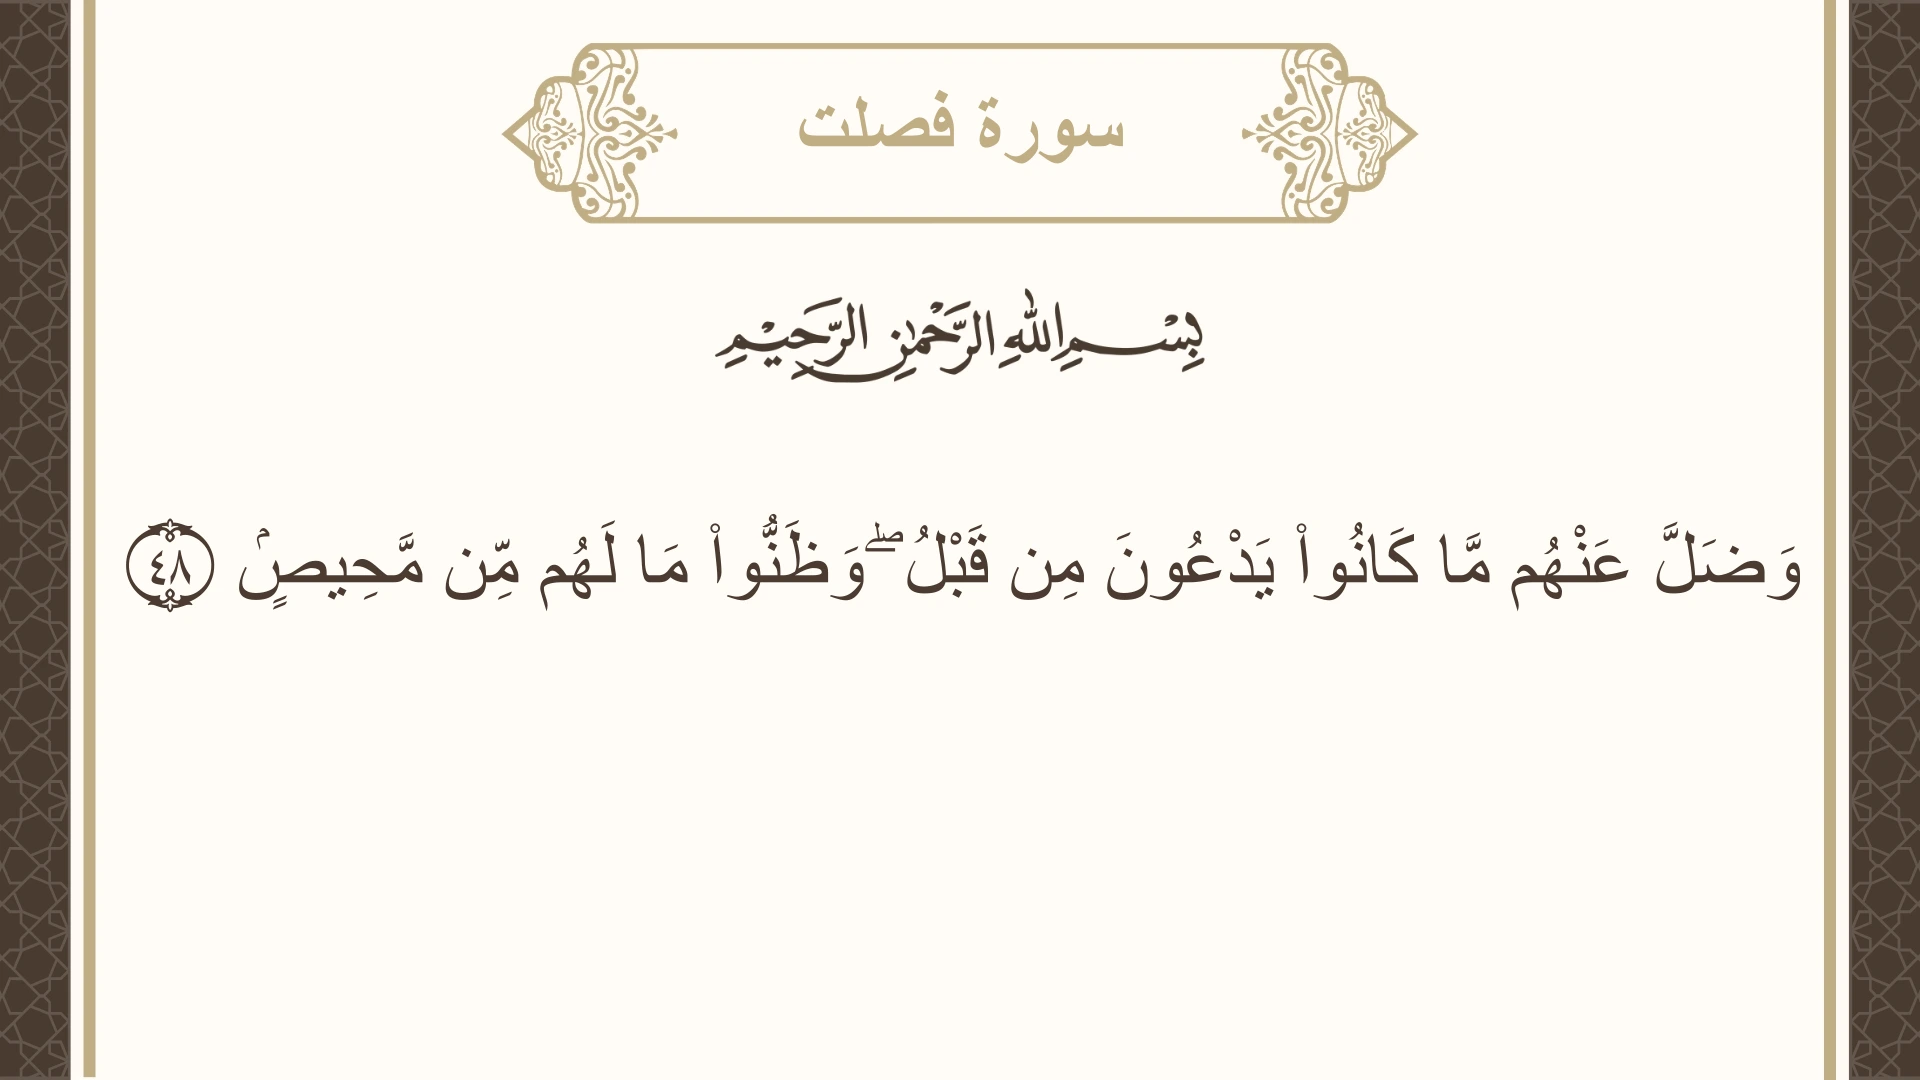 سورة فصلت
بِسْمِ اللهِ الرَّحْمٰنِ الرَّحِيْمِ
وَضَلَّ عَنْهُم مَّا كَانُوا۟ يَدْعُونَ مِن قَبْلُ ۖ وَظَنُّوا۟ مَا لَهُم مِّن مَّحِيصٍۢ ٤٨